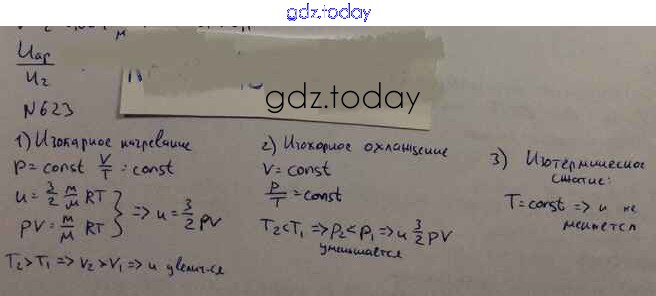 gdz.today
Uар
U₂
gdz.today
N623
1) Изобарное нагревание
P = const V/T = const
u = 3/2 m/M RT
PV = m/M RT } => u = 3/2 PV
T₂ > T₁ => V₂ > V₁ => u увелич-ся
2) Изохорное охлаждение
V = const
P/T = const
T₂ < T₁ => P₂ < P₁ => u 3/2 PV
уменьшается
3) Изотермическое
сжатие:
T = const => u не
меняется